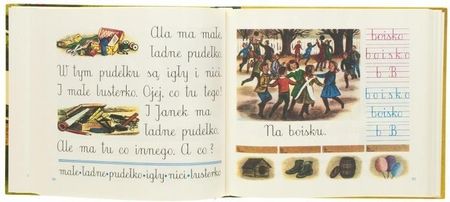 Ala ma małe
ładne pudełko.
W tym pudełku są igły i nici.
I małe lusterko. Ojej, co tu tego!
I Janek ma
ładne pudełko.
Ale ma tu co innego. A co?
małe•ładne•pudełko•igły•nici•lusterko
Na boisku.
boisko
boisko
b B
boisko
boisko
b B